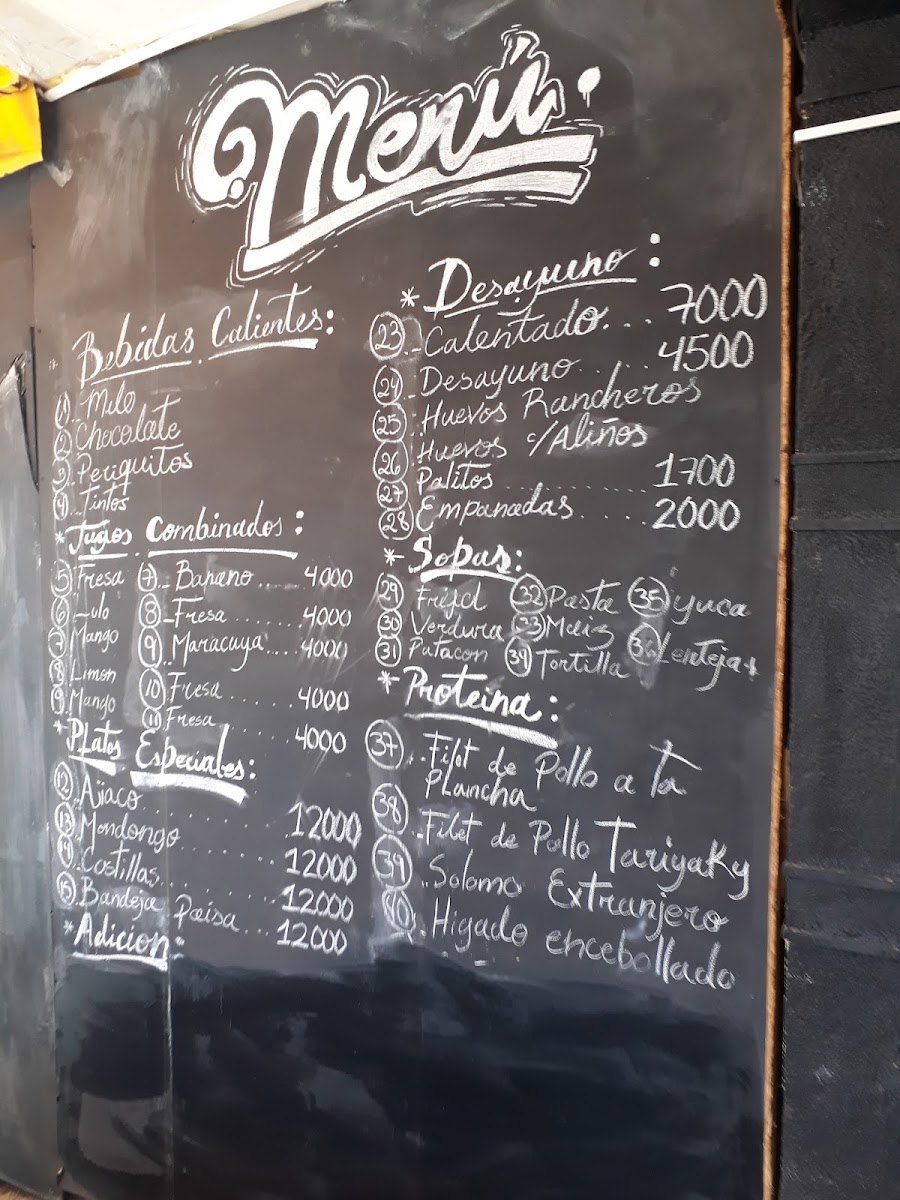 Menú
Bebidas Calientes:
1 Milo
2 Chocolate
3 Periquitos
4 Tintos
* Jugos Combinados:
5 Fresa 7 Banano.. 4000
6 Lulo 8 Fresa ...... 4000
7 Mango 9 Maracuya.... 4000
8 Limon 10 Fresa ...... 4000
9 Mango 11 Fresa ...... 4000
* Platos Especiales:
12 Ajiaco......... 12000
13 Mondongo....... 12000
14 Costillas....... 12000
15 Bandeja Paisa... 12000
* Adicion:
* Desayuno:
23 Calentado... 7000
24 Desayuno..... 4500
25 Huevos Rancheros
26 Huevos c/Aliños
27 Palitos......... 1700
28 Empanadas..... 2000
* Sopas:
29 Frijol 32 Pasta 35 yuca
30 Verdura 33 Maiz 36 Lentejas
31 Patacon 34 Tortilla
* Proteina:
37 Filet de Pollo a la
Plancha
38 Filet de Pollo Tariyaky
39 Solomo Extranjero
40 Higado encebollado